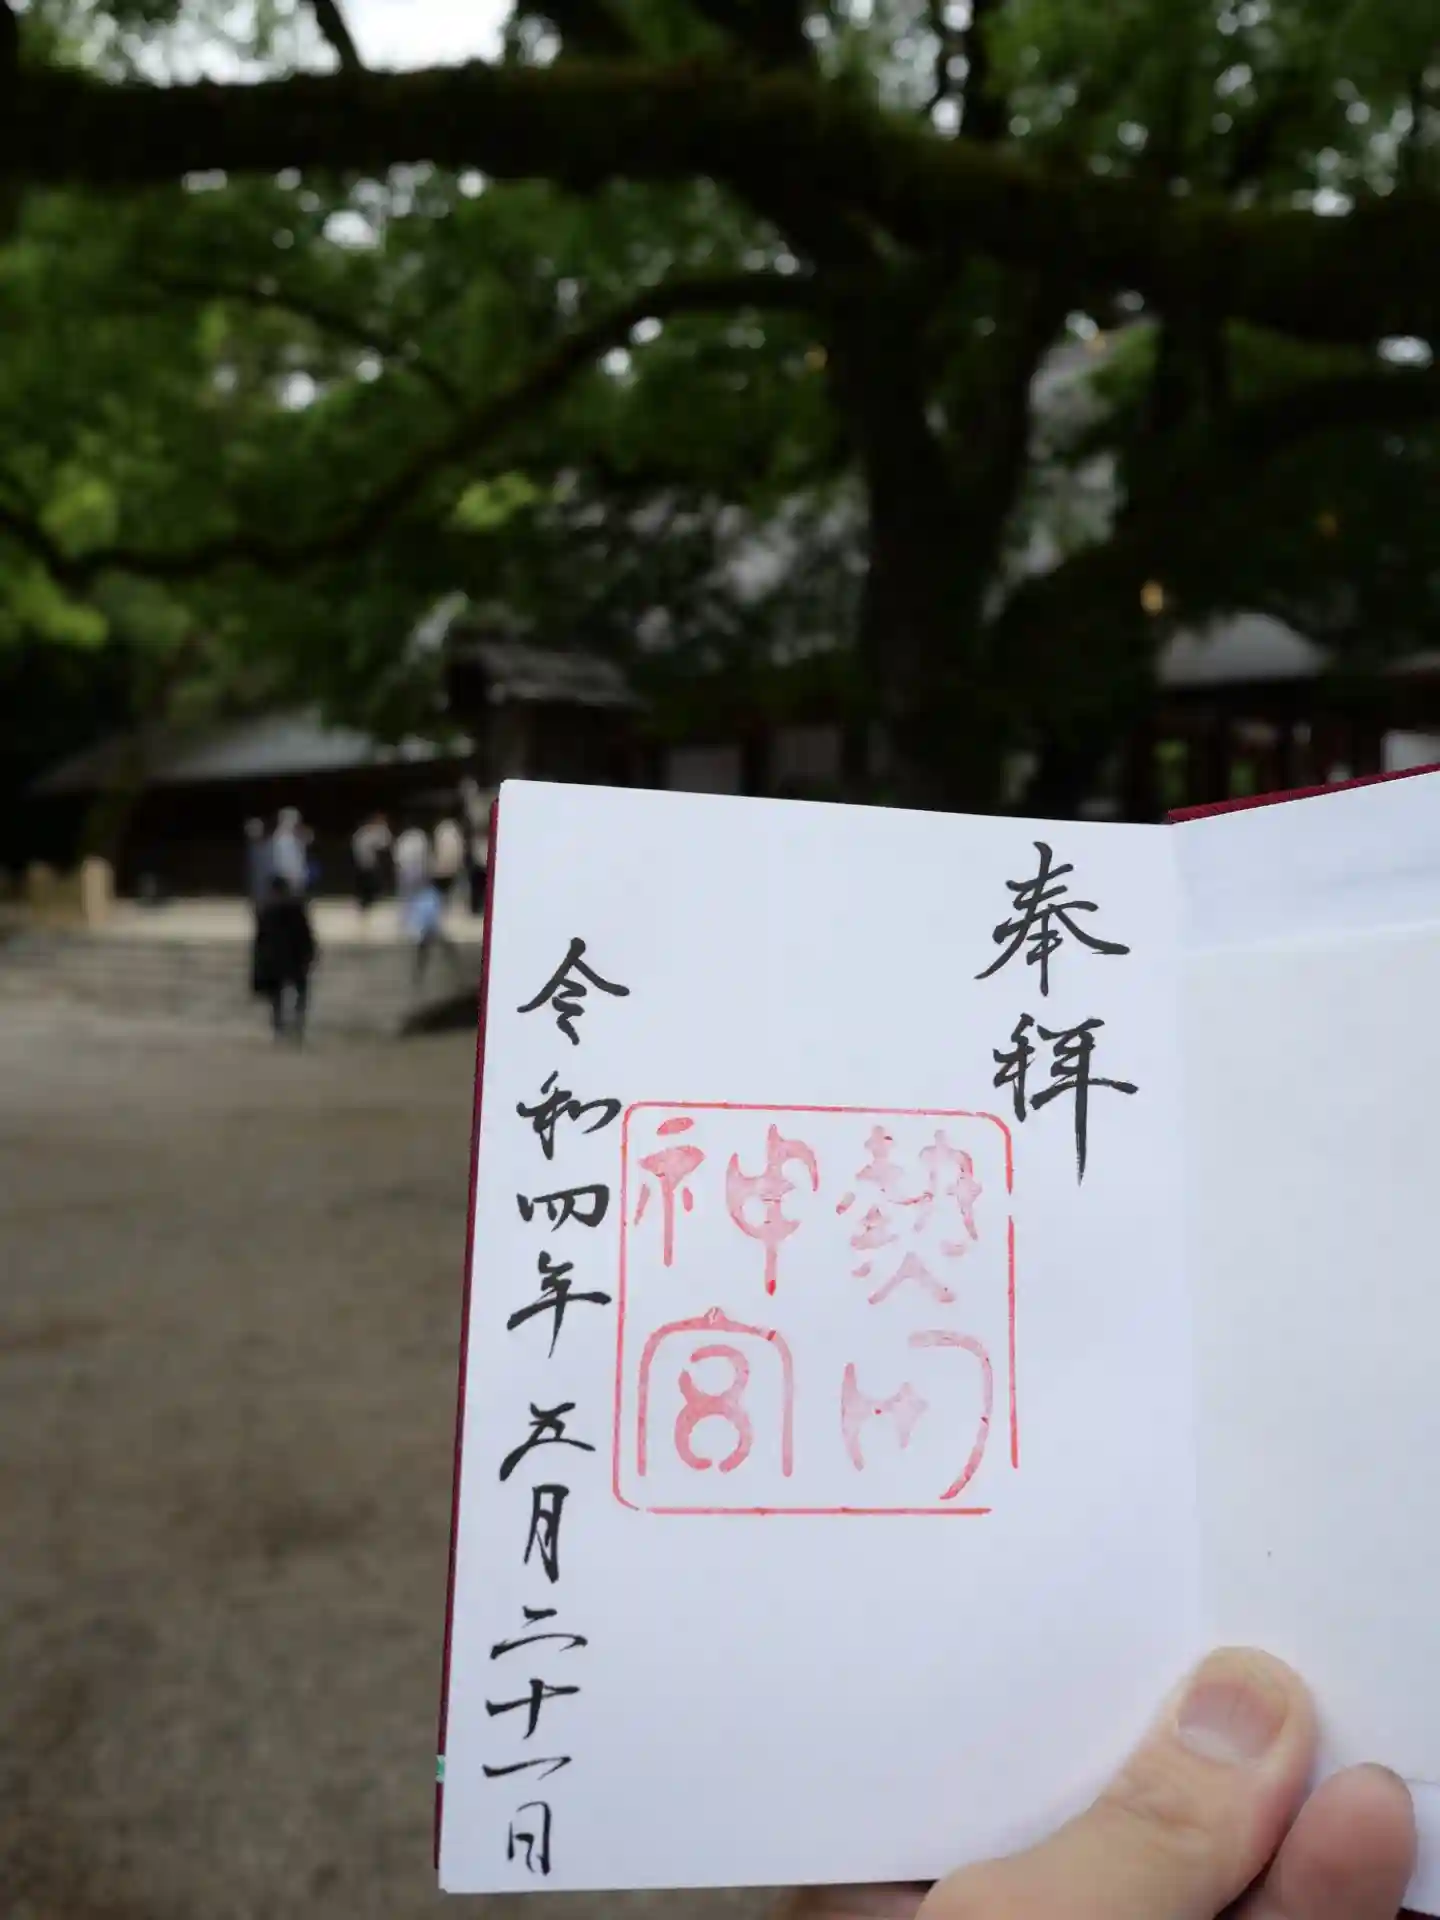 奉拝
熱田
神宮
令和四年五月二十一日